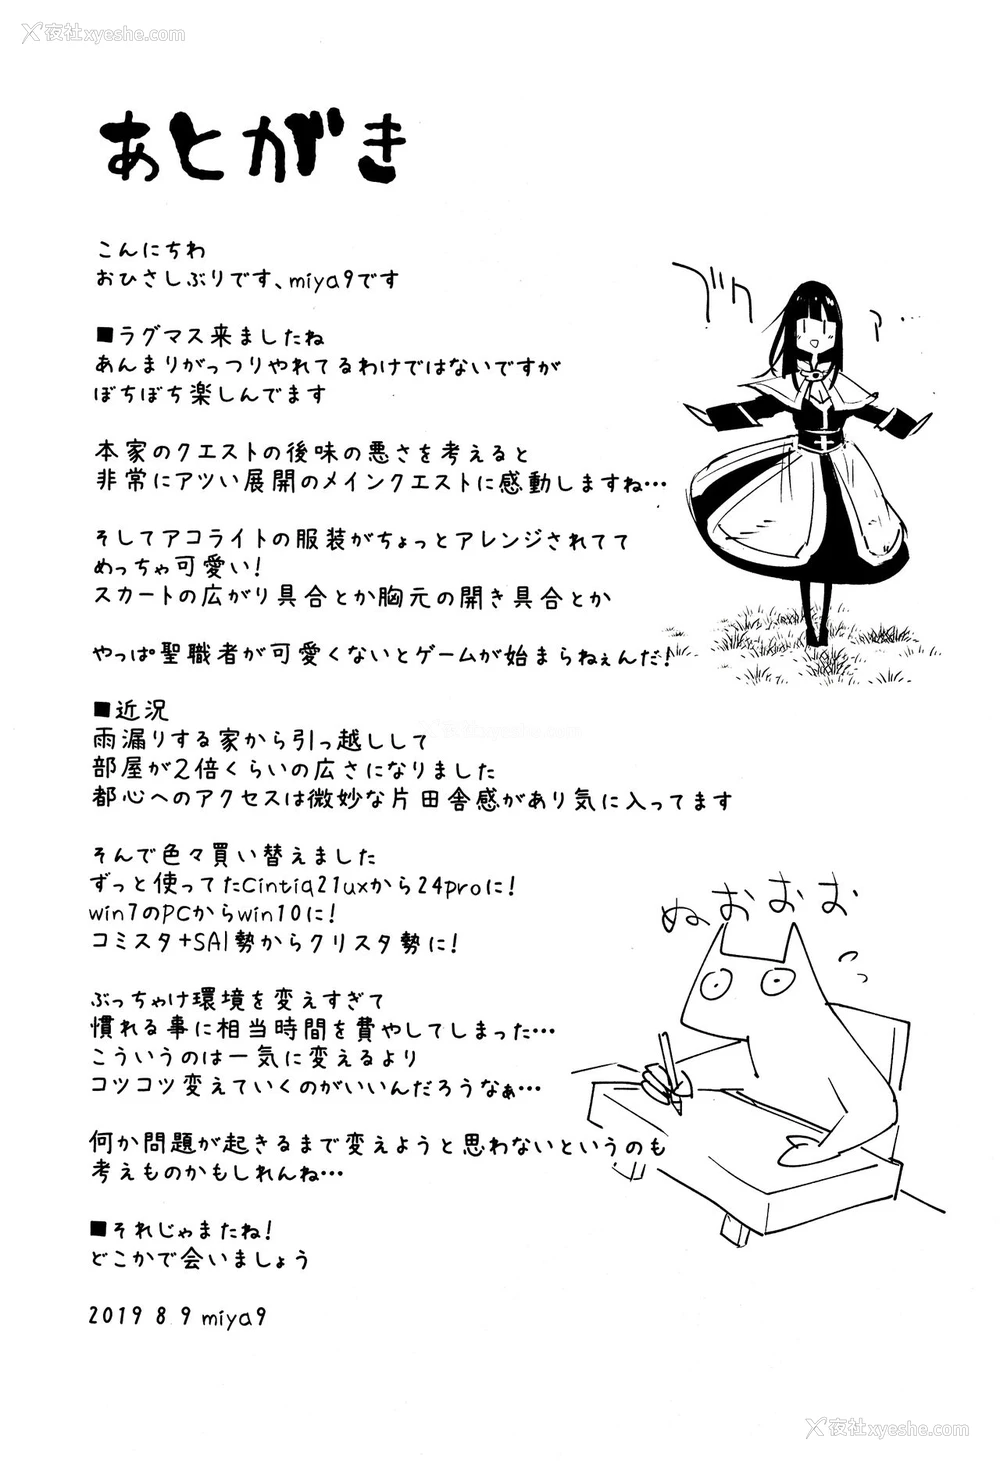 夜社xyeshe.com
あとがき
こんにちわ
おひさしぶりです、miya9です
■ラグマス来ましたね
あんまりがっつりやれてるわけではないですが
ぼちぼち楽しんでます
本家のクエストの後味の悪さを考えると
非常にアツい展開のメインクエストに感動しますね…
そしてアコライトの服装がちょっとアレンジされてて
めっちゃ可愛い！
スカートの広がり具合とか胸元の開き具合とか
やっぱ聖職者が可愛くないとゲームが始まらねぇんだ！
ブワ
ァ…
■近況
雨漏りする家から引っ越しして
部屋が2倍くらいの広さになりました
都心へのアクセスは微妙な片田舎感があり気に入ってます
そんで色々買い替えました
ずっと使ってたCintiq21uxから24proに！
win7のPCからwin10に！
コミスタ+SAI勢からクリスタ勢に！
ぶっちゃけ環境を変えすぎて
慣れる事に相当時間を費やしてしまった…
こういうのは一気に変えるより
コツコツ変えていくのがいいんだろうなぁ…
何か問題が起きるまで変えようと思わないというのも
考えものかもしれんね…
ぬおおお
■それじゃまたね！
どこかで会いましょう
2019 8 9 miya9
夜社xyeshe.com